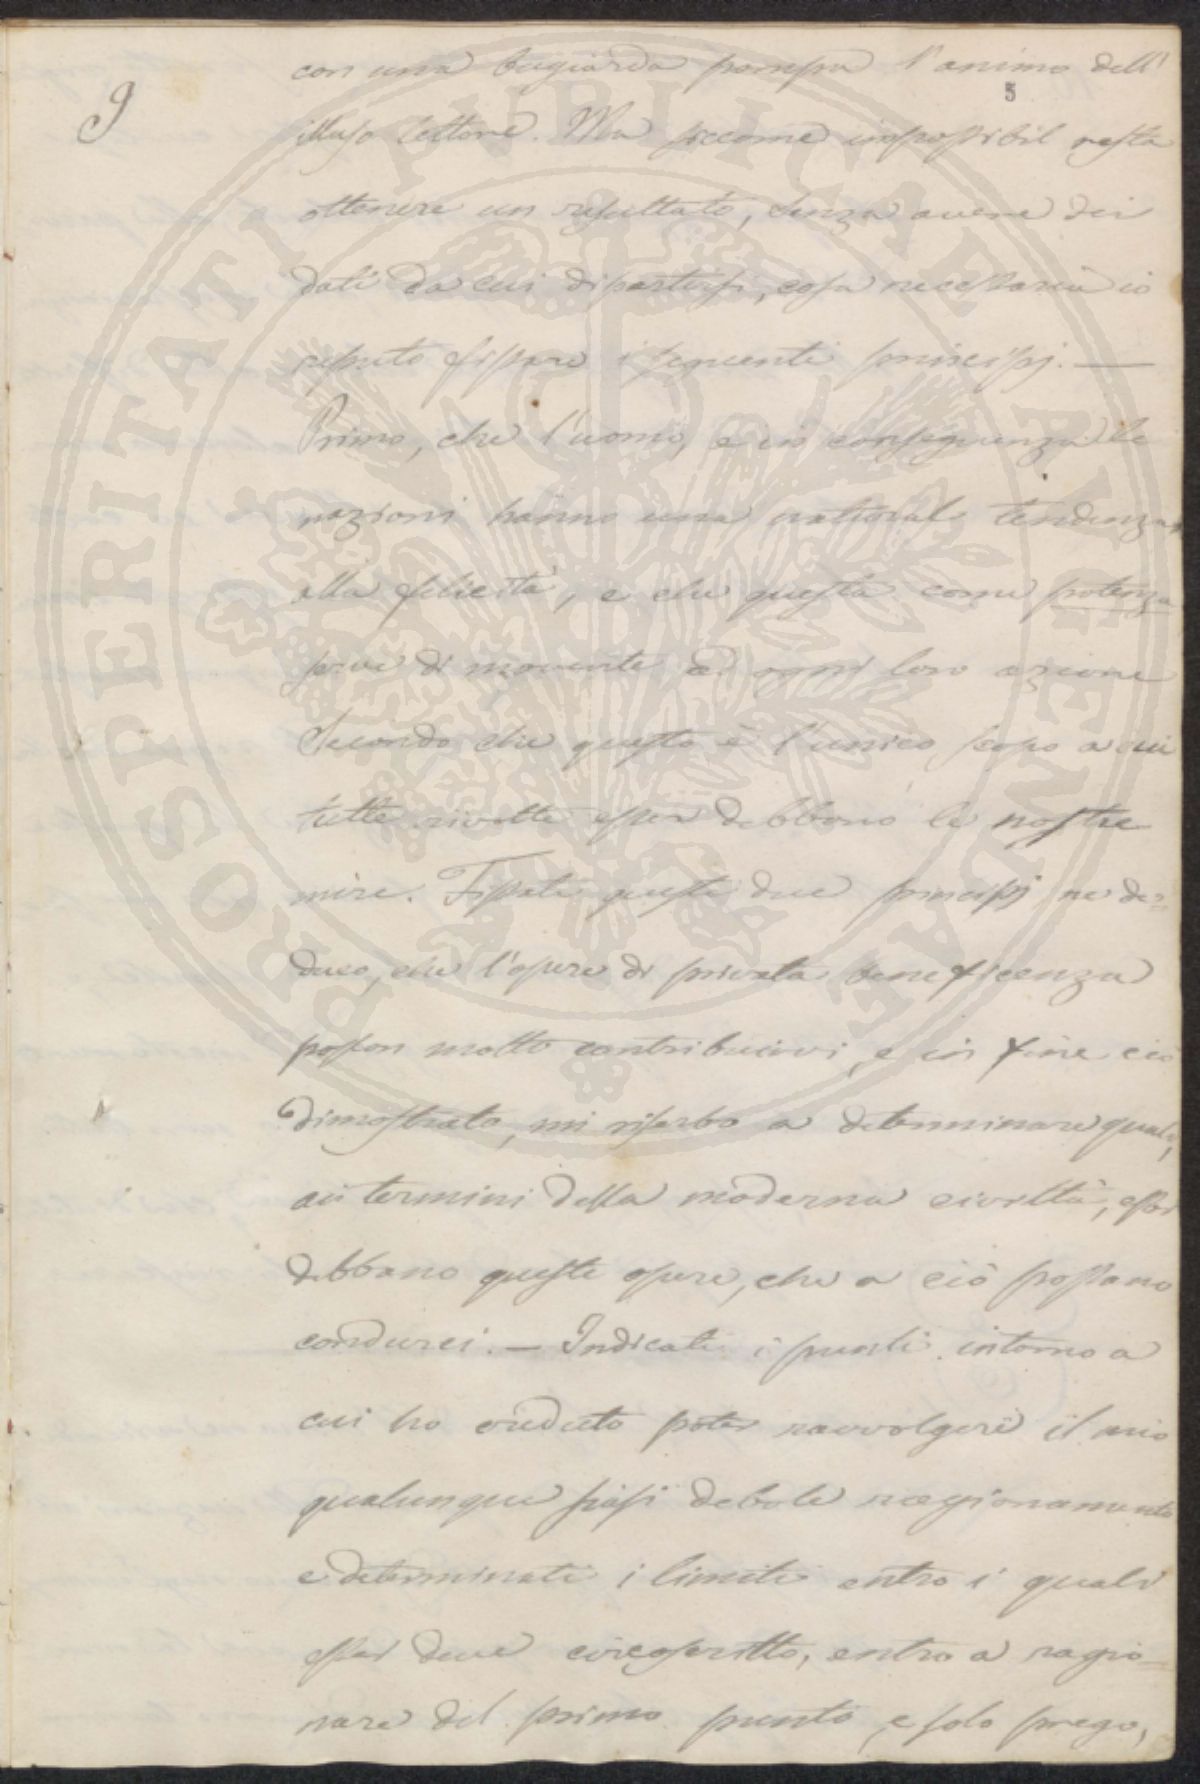 con una bugiarda pompa l'animo dell'
5
9
illuso lettore. Ma siccome impossibil resta
ottenere un risultato, senza avere dei
dati da cui dipartirsi, cosa necessaria io
reputo fissare i seguenti principj. —
Primo, che l'uomo, e in conseguenza le
nazioni hanno una natural tendenza
alla felicità, e che questa come potenza
serve di movente ad ogni loro azione
Secondo che questo è l'unico scopo a cui
tutte rivolte esser debbono le nostre
mire. Fissati questi due principj ne de=
duco, che l'opere di privata beneficenza
posson molto contribuirvi, e in fine ciò
dimostrato, mi riserbo a determinare quali,
ai termini della moderna civiltà, esser
debbano queste opere, che a ciò possano
condurci. — Indicati i punti intorno a
cui ho creduto poter ravvolgere il mio
qualunque siasi debole ragionamento
e determinati i limiti entro i quali
esser deve circoscritto, entro a ragio=
nare del primo punto, e solo prego,
PROSPERITATI PVBLICAE AVGENDAE